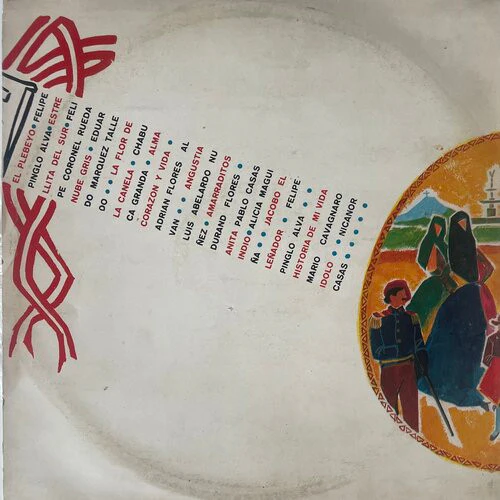 EL PLEBEYO • FELIPE
PINGLO ALVA • ESTRE
LLITA DEL SUR • FELI
PE CORONEL RUEDA
NUBE GRIS • EDUAR
DO MARQUEZ TALLE
DO • • • LA FLOR DE
LA CANELA • CHABU
CA GRANDA • ALMA
CORAZON Y VIDA • •
ADRIAN FLORES AL
VAN • • • ANGUSTIA
LUIS ABELARDO NU
ÑEZ • AMARRADITOS
DURAND FLORES • •
ANITA PABLO CASAS
INDIO • ALICIA MAGUI
ÑA • • • JACOBO EL
LEÑADOR • FELIPE
PINGLO ALVA • • •
HISTORIA DE MI VIDA
MARIO CAVAGNARO
IDOLO • • • NICANOR
CASAS • • • •